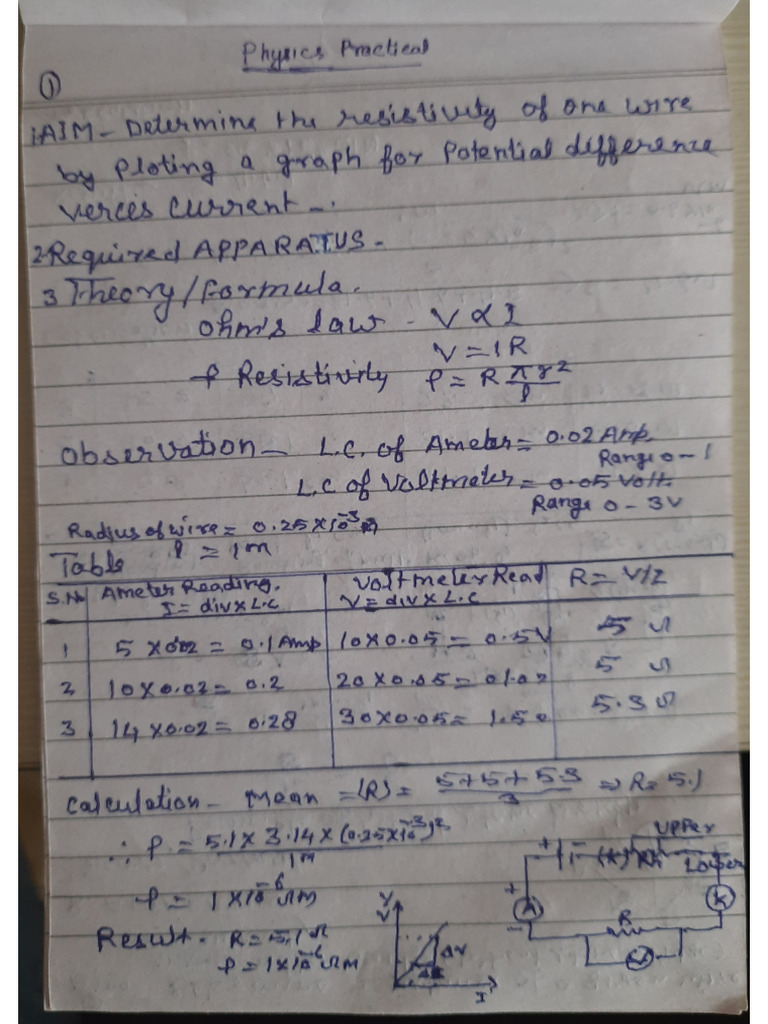 Physics Practical
①
1. AIM - Determine the resistivity of one wire
by ploting a graph for Potential difference
verces current -.
2 Required APPARATUS -
3 Theory/formula.
ohm's law - V ∝ I
V = IR
ρ Resistivity ρ = R πr²/l
Observation - L.C. of Ameter = 0.02 Amp.
Range 0 - 1
L.C of Voltmeter = 0.05 Volt.
Range 0 - 3V
Radius of wire = 0.25 × 10⁻³ m
Table l = 1m
S.No Ameter Reading. I = div × L.C Voltmeter Read V = div × L.C R = V/I
1 5 × 0.02 = 0.1 Amp 10 × 0.05 = 0.5V 5 Ω
2 10 × 0.02 = 0.2 20 × 0.05 = 1.0 5 Ω
3 14 × 0.02 = 0.28 30 × 0.05 = 1.50 5.3 Ω
Calculation - Mean = (R) = 5+5+5.3/3 ⇒ R = 5.1
∴ ρ = 5.1 × 3.14 × (0.25 × 10⁻³)²/1m
ρ = 1 × 10⁻⁶ ΩM
Result. R = 5.1 Ω
ρ = 1 × 10⁻⁶ ΩM
Y
V
ΔV
I
+ - (K) Rh
Upper
Lower
+ A -
K
R
V